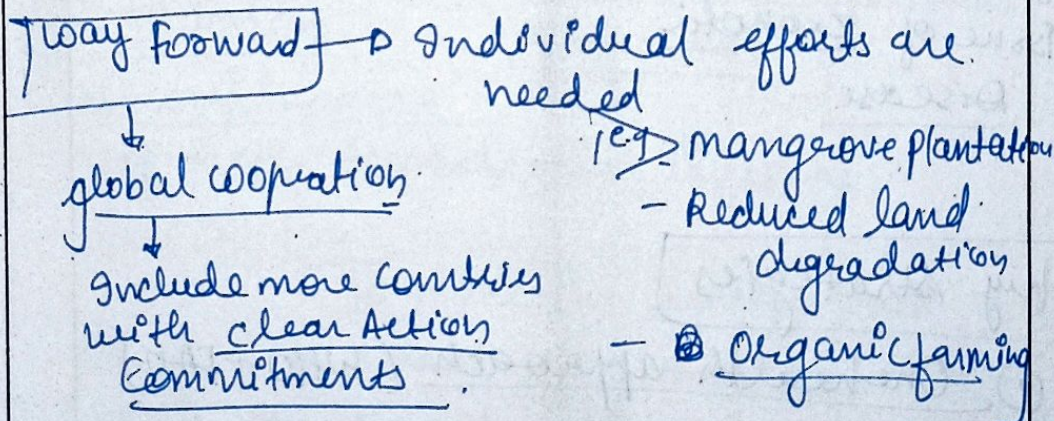 Way Forward → Individual efforts are
needed
e.g. mangrove plantation
- Reduced land
degradation
- Organic farming
global cooperation
Include more countries
with clear Action
Commitments.